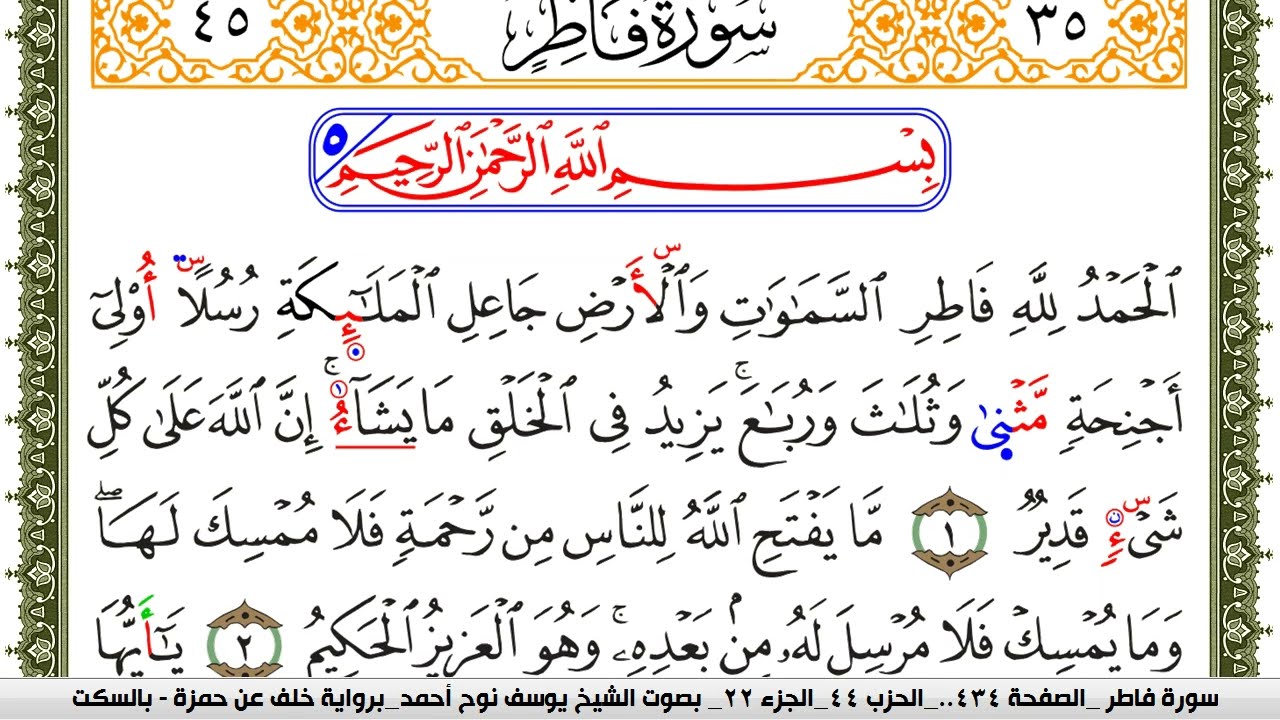 ٣٥ سورة فاطر ٤٥
بِسْمِ ٱللَّهِ ٱلرَّحْمَٰنِ ٱلرَّحِيمِ ٥
ٱلْحَمْدُ لِلَّهِ فَاطِرِ ٱلسَّمَٰوَٰتِ وَٱلْأَرْضِ جَاعِلِ ٱلْمَلَٰٓئِكَةِ رُسُلًا أُو۟لِىٓ
أَجْنِحَةٍ مَّثْنَىٰ وَثُلَٰثَ وَرُبَٰعَ ۚ يَزِيدُ فِى ٱلْخَلْقِ مَا يَشَآءُ ۚ إِنَّ ٱللَّهَ عَلَىٰ كُلِّ
شَىْءٍ قَدِيرٌ ١ مَّا يَفْتَحِ ٱللَّهُ لِلنَّاسِ مِن رَّحْمَةٍ فَلَا مُمْسِكَ لَهَا ۖ
وَمَا يُمْسِكْ فَلَا مُرْسِلَ لَهُۥ مِنۢ بَعْدِهِۦ ۚ وَهُوَ ٱلْعَزِيزُ ٱلْحَكِيمُ ٢ يَٰٓأَيُّهَا
سورة فاطر _الصفحة ٤٣٤.._الحزب ٤٤_الجزء ٢٢_ بصوت الشيخ يوسف نوح أحمد_برواية خلف عن حمزة - بالسكت